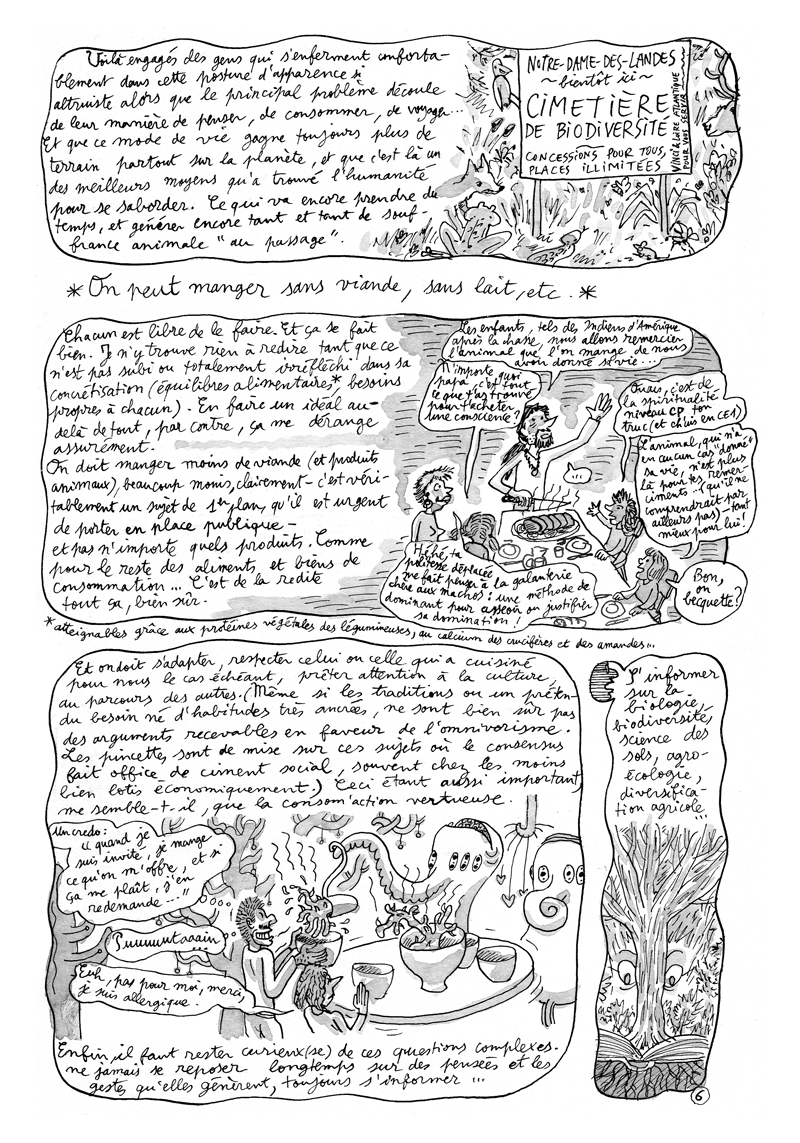 Voilà engagés des gens qui s'enferment conforta-
blement dans cette posture d'apparence si
altruiste alors que le principal problème découle
de leur manière de penser, de consommer, de voyager...
Et que ce mode de vie gagne toujours plus de
terrain partout sur la planète, et que c'est là un
des meilleurs moyens qu'a trouvé l'humanité
pour se saborder. Ce qui va encore prendre du
temps, et générer encore tant et tant de souf-
france animale "au passage".
NOTRE-DAME-DES-LANDES
~ bientôt ici ~
CIMETIÈRE
DE BIODIVERSITÉ
CONCESSIONS POUR TOUS,
PLACES ILLIMITÉES
VINCI & LOIRE ATLANTIQUE
POUR VOUS SERVIR
* On peut manger sans viande, sans lait, etc. *
Chacun est libre de le faire. Et ça se fait
bien. J'n'y trouve rien à redire tant que ce
n'est pas subi ou totalement irréfléchi dans sa
concrétisation (équilibres alimentaires,* besoins
propres à chacun). En faire un idéal au-
delà de tout, par contre, ça me dérange
assurément.
On doit manger moins de viande (et produits
animaux), beaucoup moins, clairement - c'est véri-
tablement un sujet de 1er plan, qu'il est urgent
de porter en place publique -
et pas n'importe quels produits. Comme
pour le reste des aliments et biens de
consommation... C'est de la redite
tout ça, bien sûr.
Les enfants, tels des Indiens d'Amérique
après la chasse, nous allons remercier
l'animal que l'on mange de nous
avoir donné sa vie...
N'importe quoi
papa, c'est tout
ce que t'as trouvé
pour t'acheter
une conscience?
Ouais, c'est de
la spiritualité
niveau CP ton
truc (et chuis en CE1)
...
L'animal, qui n'a
en aucun cas "donné"
sa vie, n'est plus
là pour tes remer-
ciments... (qu'il ne
comprendrait par
ailleurs pas) - tant
mieux pour lui!
Héhé, ta
politesse déplacée
me fait penser à la galanterie
chère aux machos: une méthode de
dominant pour asseoir ou justifier
sa domination!
Bon,
on
becquette?
*atteignables grâce aux protéines végétales des légumineuses, au calcium des crucifères et des amandes...
Et on doit s'adapter, respecter celui ou celle qui a cuisiné
pour nous le cas échéant, prêter attention à la culture,
au parcours des autres. (Même si les traditions ou un préten-
du besoin né d'habitudes très ancrées, ne sont bien sûr pas
des arguments recevables en faveur de l'omnivorisme.
Les pincettes sont de mise sur ces sujets où le consensus
fait office de ciment social, souvent chez les moins
bien lotis économiquement.) Ceci étant aussi important,
me semble-t-il, que la consom'action vertueuse.
Un credo:
"quand je
suis invité, je mange
ce qu'on m'offre, et si
ça me plaît, j'en
redemande..."
Puuuuutaaain
...
Euh, pas pour moi, merci,
je suis allergique.
Enfin, il faut rester curieux(se) de ces questions complexes.
ne jamais se reposer longtemps sur des pensées et les
gestes qu'elles génèrent, toujours s'informer...
S'informer
sur la
biologie,
biodiversités,
science des
sols, agro-
écologie,
diversifica-
tion agricole
...
6